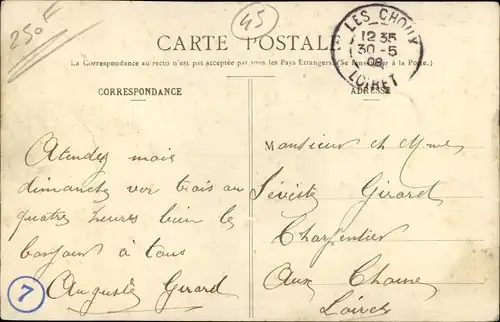 250F
45
LES CHOUX
12 35
30-5
08
LOIRET
CARTE POSTALE
La Correspondance au recto n'est pas acceptée par tous les Pays Etrangers (Se renseigner à la Poste.)
CORRESPONDANCE
Atendez mois
dimanche ver trois au
quatre heures bien le
bonjour à tous
Auguste Girard
7
ADRESSE
Monsieur et Mme
Girard
Charpentier
Aux Choux
Loiret